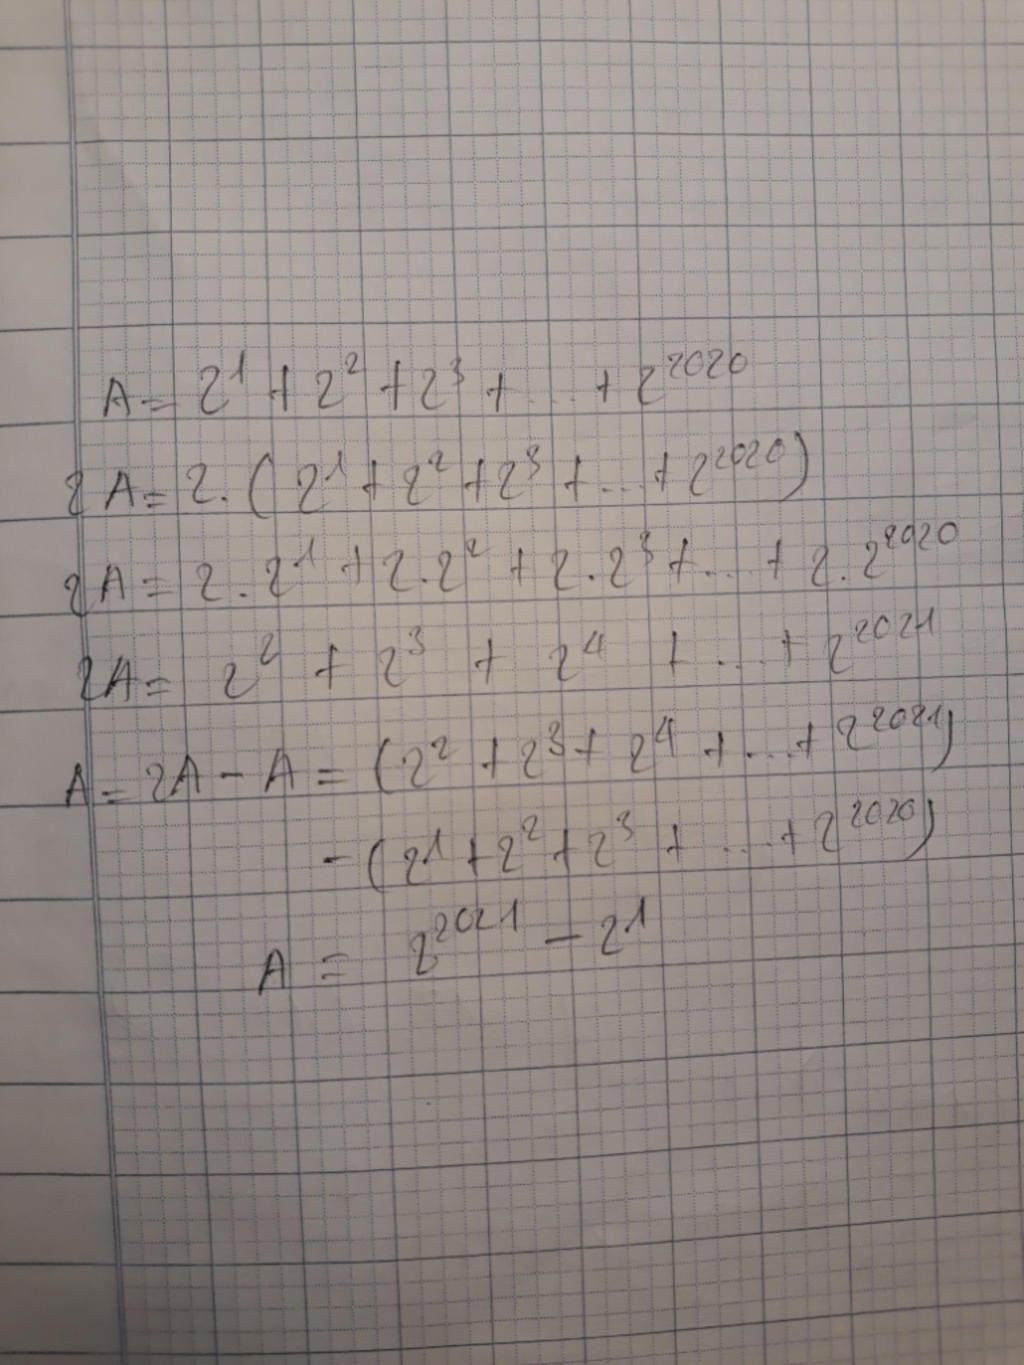 A = 2¹ + 2² + 2³ + ... + 2²⁰²⁰
2A = 2.(2¹ + 2² + 2³ + ... + 2²⁰²⁰)
2A = 2.2¹ + 2.2² + 2.2³ + ... + 2.2²⁰²⁰
2A = 2² + 2³ + 2⁴ + ... + 2²⁰²¹
A = 2A - A = (2² + 2³ + 2⁴ + ... + 2²⁰²¹)
- (2¹ + 2² + 2³ + ... + 2²⁰²⁰)
A = 2²⁰²¹ - 2¹